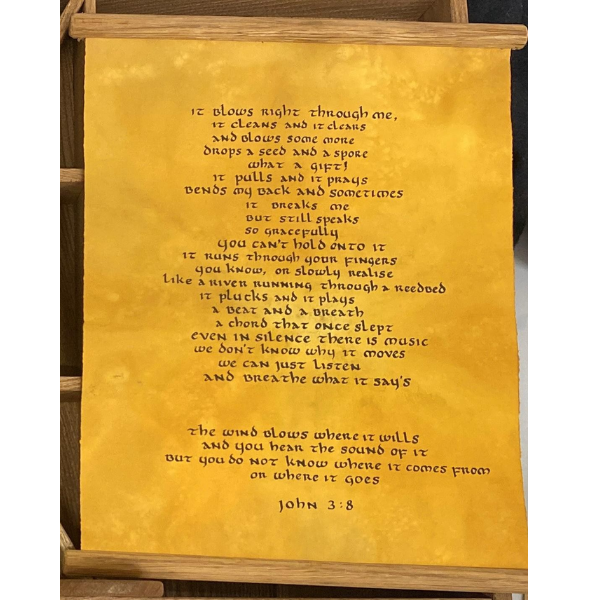 it blows right through me,
it cleans and it clears
and blows some more
drops a seed and a spore
what a gift!
it pulls and it prays
bends my back and sometimes
it breaks me
but still speaks
so gracefully
you can't hold onto it
it runs through your fingers
you know, or slowly realise
like a river running through a reedbed
it plucks and it plays
a beat and a breath
a chord that once slept
even in silence there is music
we don't know why it moves
we can just listen
and breathe what it say's
the wind blows where it wills
and you hear the sound of it
but you do not know where it comes from
or where it goes
John 3:8